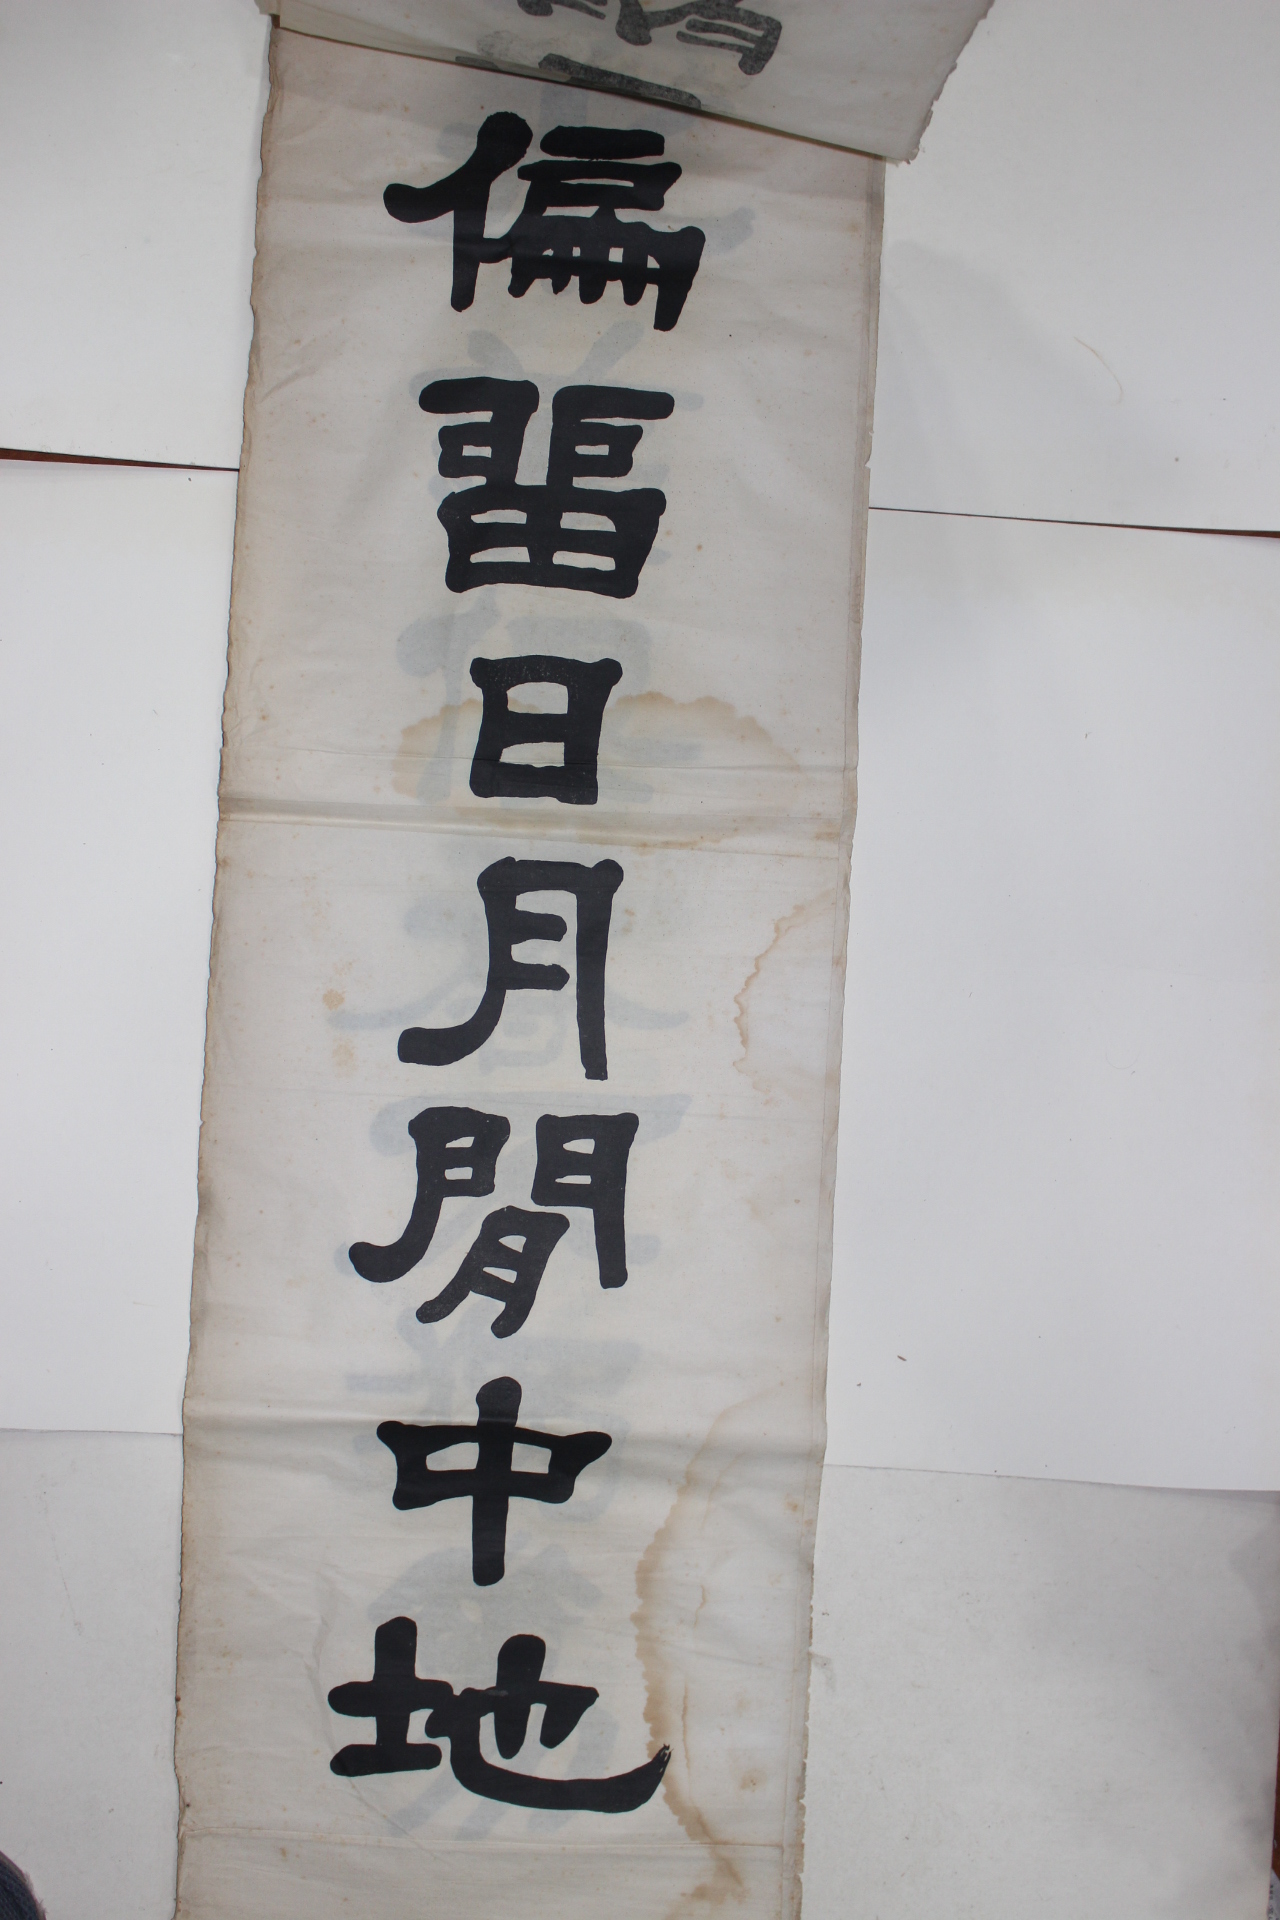 偏畱日月閒中地